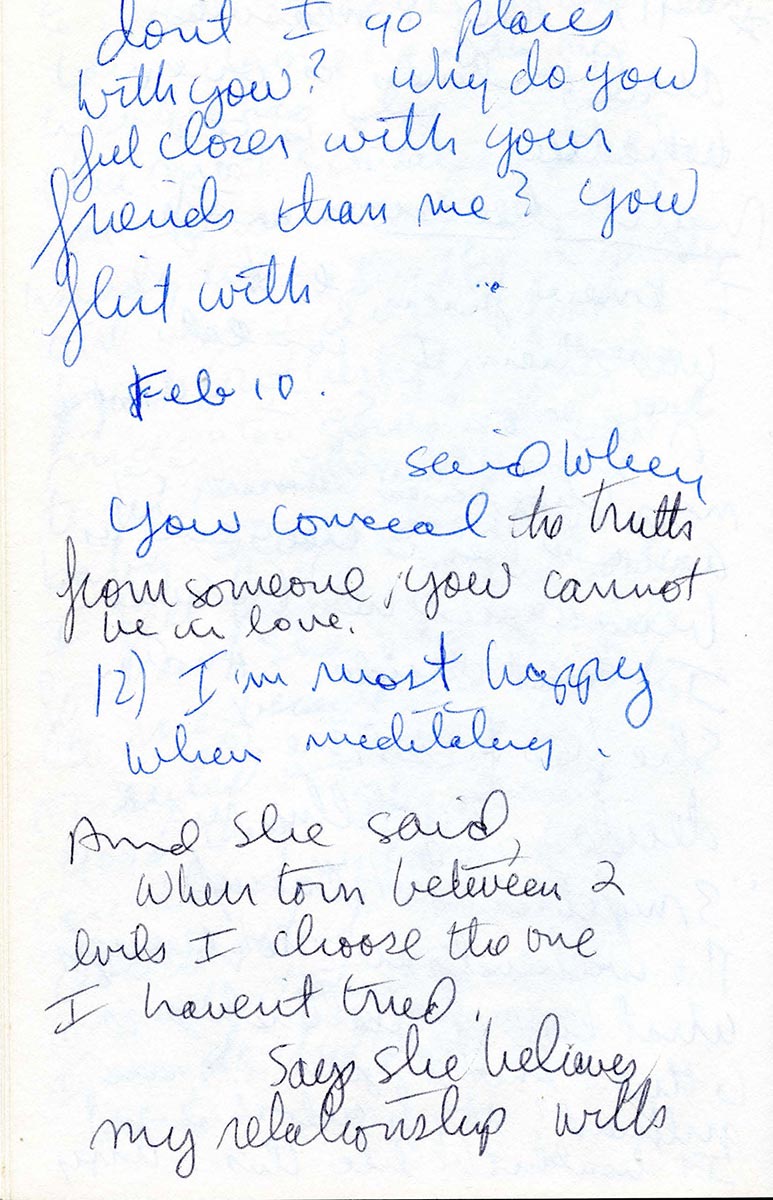 dont I go places
with you? Why do you
feel closer with your
friends than me? You
flirt with
Feb 10.
said when
you conceal the truth
from someone, you cannot
be in love.
12) I'm most happy
when meditating.
And she said,
When torn between 2
evils I choose the one
I havent tried.
Says she believes
my relationship with